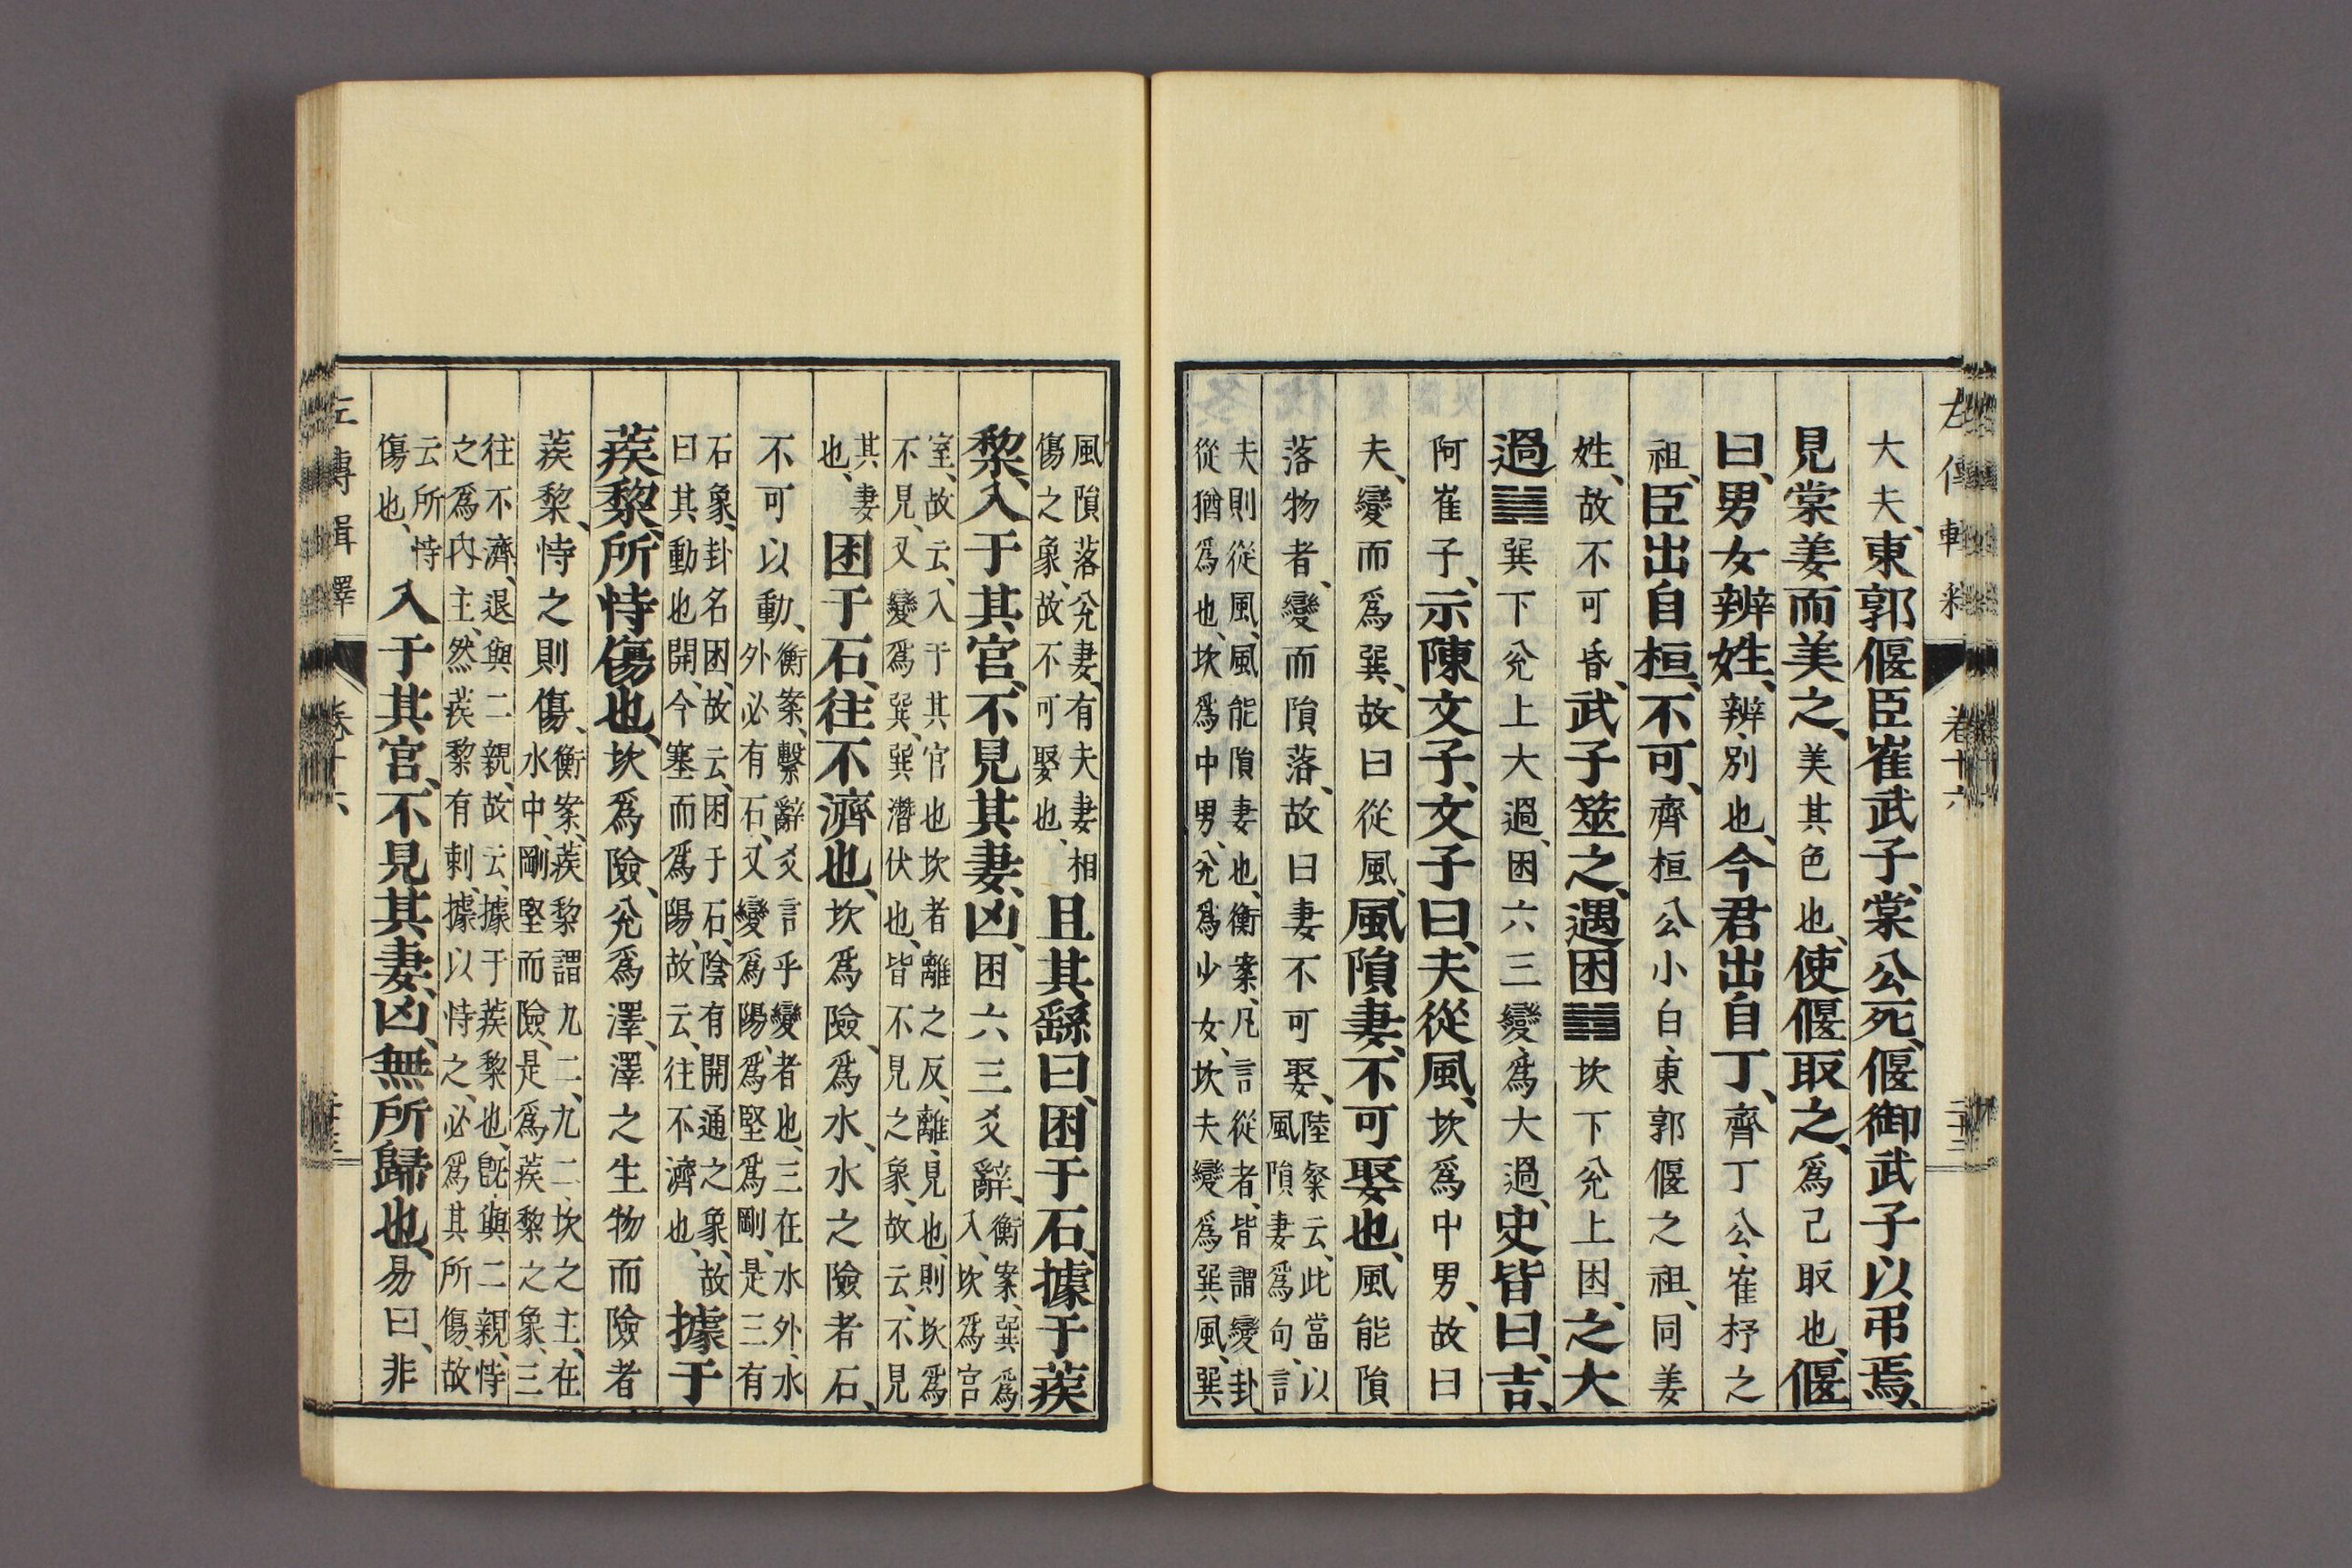 大夫、東郭偃臣崔武子、棠公死、偃御武子以弔焉、
見棠姜而美之、美其色也、使偃取之、爲己取也、偃
曰、男女辨姓、辨、別也、今君出自丁、齊丁公、崔杼之
祖、臣出自桓、不可、齊桓公小白、東郭偃之祖、同姜
姓、故不可昏、武子筮之、遇困䷮坎下兌上困、之大
過䷛巽下兌上大過、困六三變、爲大過、史皆曰、吉、
阿崔子、示陳文子、文子曰、夫從風、坎爲中男、故曰
夫、變而爲巽、故曰從風、風隕妻、不可娶也、風能隕
落物者、變而隕落、故曰妻不可娶、陸粲云、此當以
風隕妻爲句、言
夫則從風、風能隕妻也、衡案、凡言從者、皆謂變卦、
從猶爲也、坎爲中男、兌爲少女、坎夫變爲巽風、巽
風隕落兌妻、有夫妻相
傷之象、故不可娶也、且其繇曰、困于石、據于蒺
藜、入于其宮、不見其妻、凶、困六三爻辭、衡案、巽爲
入、坎爲宮
室、故云、入于其宮也、坎者離之反、離、見也、則坎爲
不見、又變爲巽、巽潛伏也、皆不見之象、故云、不見
其妻
也、困于石、往不濟也、坎爲險、爲水、水之險者石、
不可以動、衡案、繫辭、爻言乎變者也、三在水外、水
外必有石、又變爲陽、爲堅爲剛、是三有
石象、卦名困、故云、困于石、陰有開通之象、故
曰其動也開、今塞而爲陽、故云、往不濟也、據于
蒺藜、所恃傷也、坎爲險、兌爲澤、澤之生物而險者
蒺藜、恃之則傷、衡案、蒺藜謂九二、九二、坎之主、在
水中、剛堅而險、是爲蒺藜之象、三
往不濟、退與二親、故云、據于蒺藜也、既與二親、恃
之爲內主、然蒺藜有刺、據以恃之、必爲其所傷、故
云所恃
傷也、入于其宮、不見其妻、凶、無所歸也、易曰、非
左傳輯釋 卷十六